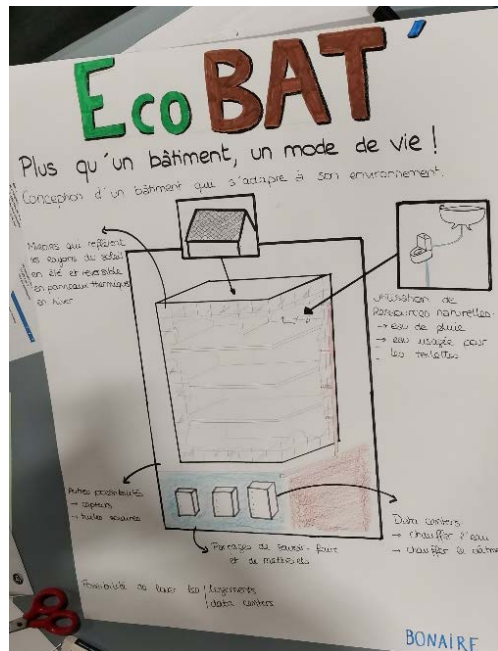 EcoBAT'
Plus qu'un bâtiment, un mode de vie !
Conception d'un bâtiment que s'adapte à son environnement.
Miroirs qui reflètent
les rayons du soleil
en été et réversible
en panneaux thermiques
en hiver
Utilisation de
Ressources naturelles:
→ eau de pluie
→ eau usagée pour
les toilettes
Autres possibilités
→ capteurs
→ tuiles solaires
Data centers
→ chauffer l'eau
→ chauffer le
Partages de savoir-faire
et de matériels
Possibilité de louer les logements
data centers
BONAIRE